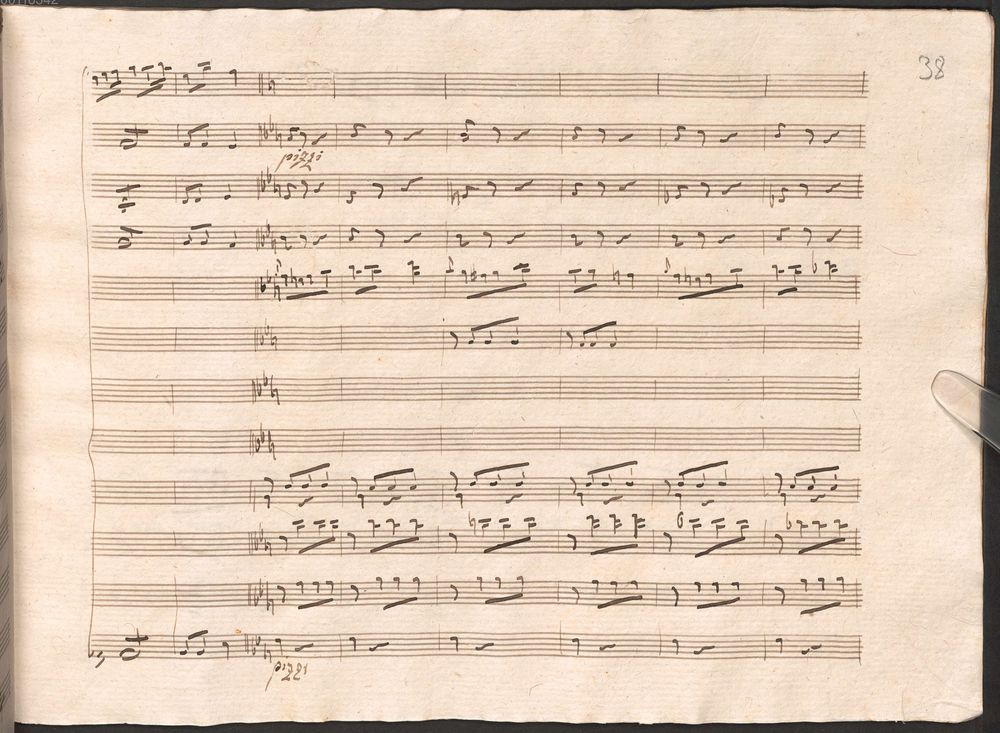 38
pizzi
pizzi